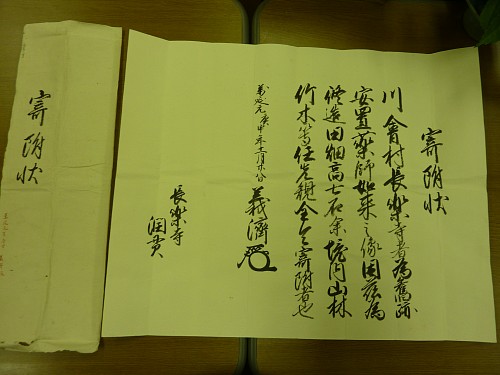 寄附状
川會村長樂寺者為舊跡
安置藥師如来之像因茲為
修造田畑高七石余境内山林
竹木等任先規全令寄附者也
萬延元庚申年
義濟
長樂寺
寄附状